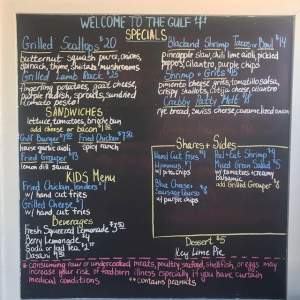 WELCOME TO THE GULF
SPECIALS
Grilled Scallops $20
butternut squash puree, onions,
spinach, thyme, shiitake mushrooms
Grilled Lamb Rack $25
fingerling potatoes, goat cheese,
purple radish, sprouts, sundried
tomato pesto
SANDWICHES
lettuce, tomatoes, brioche bun
add cheese or bacon
Gulf Burger
house garlic aioli
Fried Chicken
spicy ranch
Fried Grouper
lemon dill sauce
KIDS MENU
Fried Chicken Tenders
w/ hand cut fries
Grilled Cheese
w/ hand cut fries
Beverages
Fresh Squeezed Lemonade
Berry Lemonade
Soda or Iced Tea
Dasani
Blackened Shrimp Tacos or Bowl $14
pineapple slaw, chili lime aioli, pickled
peppers, cilantro, purple chips
Shrimp + Grits
pimento cheese grits, tomatillo salsa,
crispy shallots, cotija cheese, cilantro
Crabby Patty Melt
rye bread, swiss cheese, caramelized onion
Shares + Sides
Hand Cut Fries
Hummus
w/ pita chips
Blue Cheese +
w/ purple chips
Peel + Eat Shrimp
Mixed Green Salad
w/ tomatoes, creamy
balsamic
add Grilled Grouper
Dessert $5
Key Lime Pie
* consuming raw or undercooked meats, poultry, seafood, shellfish, or eggs may
increase your risk of foodborn illness especially if you have certain
medical conditions
** contains peanuts